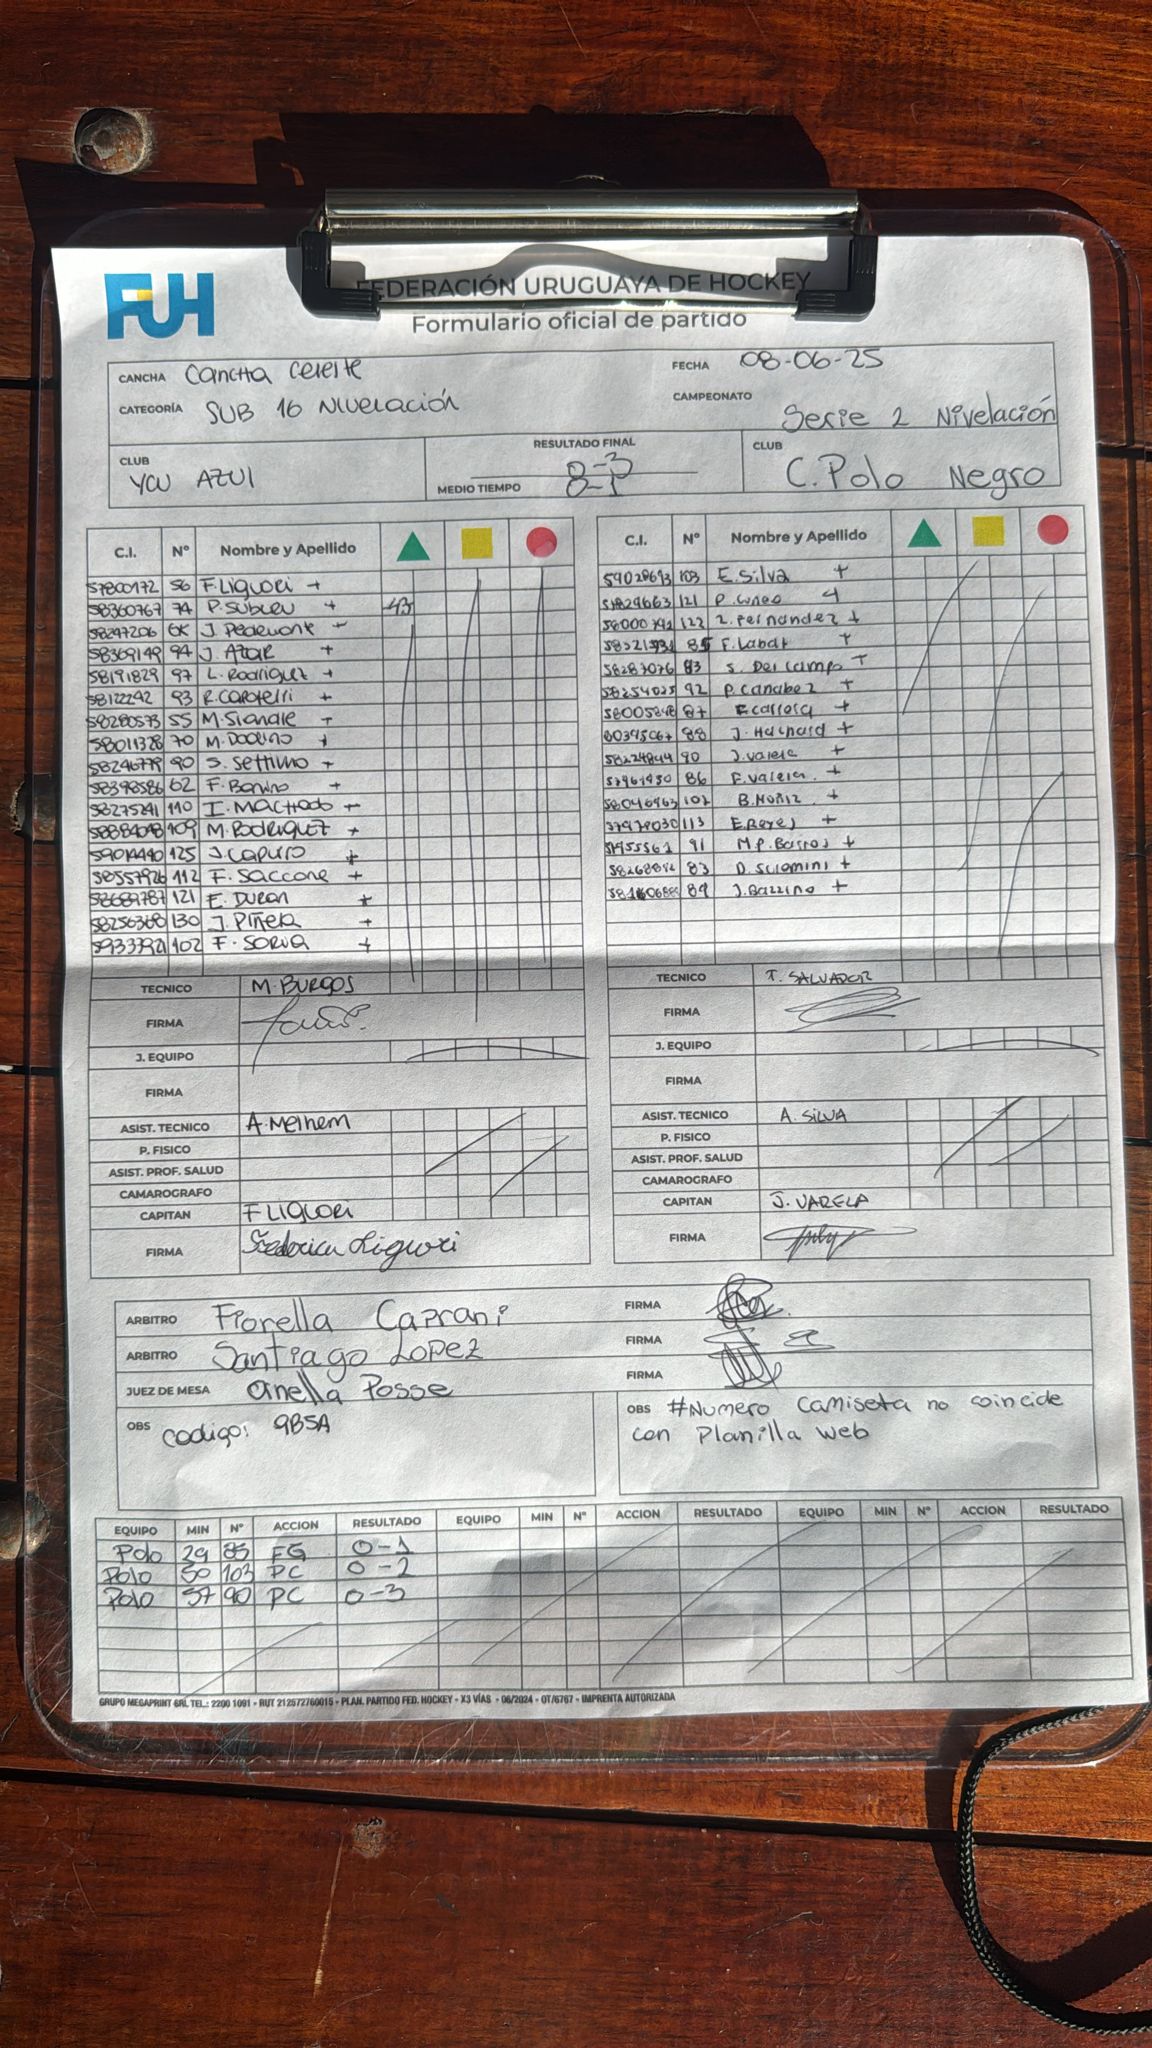 FUH
FEDERACIÓN URUGUAYA DE HOCKEY
Formulario oficial de partido
CANCHA Cancha Celeste FECHA 08-06-25
CATEGORÍA SUB 16 Nivelación CAMPEONATO Serie 2 Nivelación
CLUB YCU AZUl RESULTADO FINAL 0-3 CLUB C. Polo Negro
MEDIO TIEMPO 0-1
C.I. Nº Nombre y Apellido
57800172 56 F. Liguori +
58360767 74 P. Subleu + 43
58247206 J. +
58369149 94 J. Azar +
58191829 97 L. Rodriguez +
93 R. +
58280573 55 M. +
58011328 70 M. +
90 S. Settimo +
58398586 62 F. Bonino +
58275241 110 I. Machado +
109 M. Rodriguez +
125 J. Capuro +
58557926 112 F. Saccone +
58689787 121 E. Duran +
58256368 130 J. Piñera +
102 F. Soria +
TECNICO M. BURGOS
FIRMA
J. EQUIPO
FIRMA
ASIST. TECNICO A. Melhem
P. FISICO
ASIST. PROF. SALUD
CAMAROGRAFO
CAPITAN F LIGUORI
FIRMA Federica Liguori
C.I. Nº Nombre y Apellido
59028693 103 E. Silva +
121 P. Cuneo +
122 Z. Fernandez +
85 F. Labat +
58283076 S. Del Campo +
58254025 92 P. Canabez +
87 F. Carrera +
88 J. +
58224844 90 J. Varela +
86 F. Valeia. +
B. Muñiz +
113 E. Reyes +
91 M.P. Barros +
83 D. Scremini +
89 J. Bazzino +
TECNICO T. SALVADOR
FIRMA
J. EQUIPO
FIRMA
ASIST. TECNICO A. SILVA
P. FISICO
ASIST. PROF. SALUD
CAMAROGRAFO
CAPITAN J. VARELA
FIRMA
ARBITRO Fiorella Caprani FIRMA
ARBITRO Santiago Lopez FIRMA
JUEZ DE MESA Anella Posse FIRMA
OBS Codigo: 9B5A
OBS #Numero camiseta no coincide
con Planilla web
EQUIPO MIN Nº ACCION RESULTADO EQUIPO MIN Nº ACCION RESULTADO EQUIPO MIN Nº ACCION RESULTADO
Polo 29 85 FG 0-1
Polo 50 103 PC 0-2
Polo 57 90 PC 0-3
GRUPO MEGAPRINT SRL TEL.: 2200 1091 - RUT 212572760015 - PLAN. PARTIDO FED. HOCKEY - X3 VÍAS - 06/2024 - OT/6767 - IMPRENTA AUTORIZADA